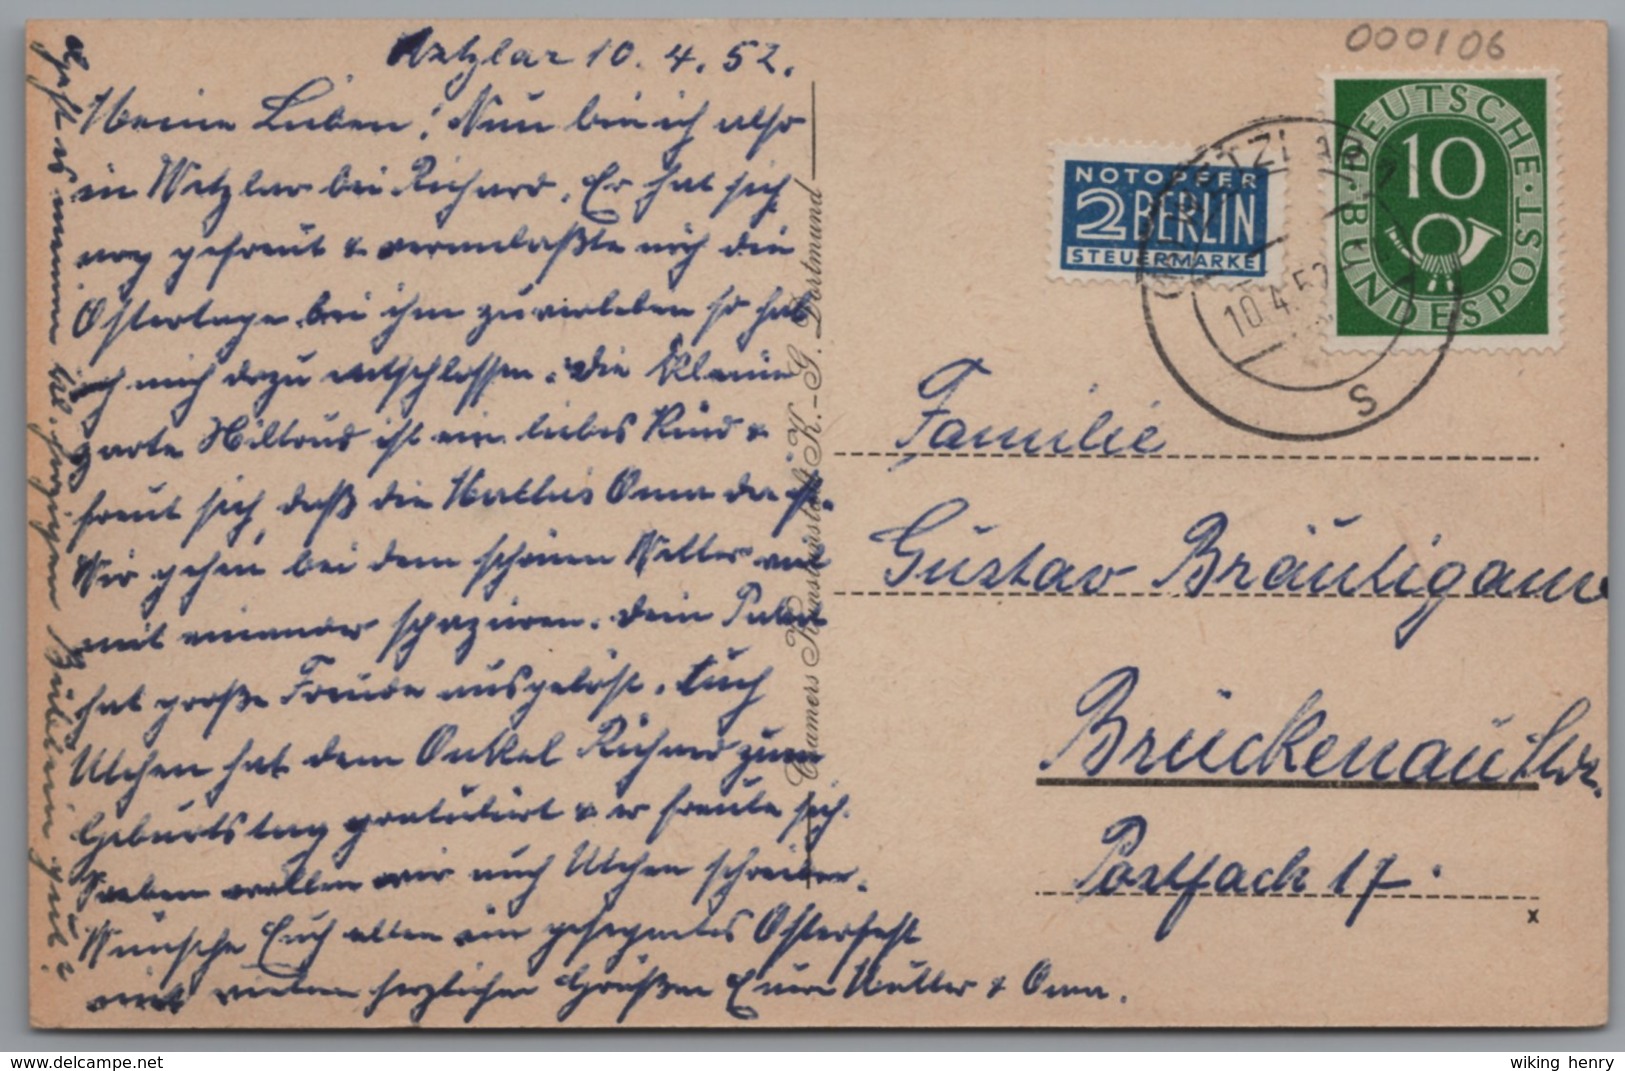 000106
Wetzlar 10. 4. 52.
Meine Lieben! Nun bin ich also
in Wetzlar bei Richard. Er hat sich
arg gefreut & veranlaßte mich die
Ostertage bei ihm zu verleben so hab
ich mich dazu entschlossen. Die kleine
zarte Hiltrud ist ein liebes Kind &
freut sich, daß die Oma da ist.
Wir gehen bei dem schönen Wetter viel
mit einander spazieren. Dein Paket
hat große Freude ausgelöst. Auch
Utchen hat dem Onkel Richard zum
Geburtstag gratuliert & er freute sich.
Soeben wollen wir auch Utchen schreiben.
Wünsche Euch allen ein gesegnetes Osterfest
mit vielen herzlichen Grüßen Eure Mutter & Oma.
Geht es meinem kl. herzigen Bübelein gut?
Cramers Kunstanstalt K.-G. Dortmund
NOTOPFER
2 BERLIN
STEUERMARKE
DEUTSCHE BUNDESPOST
10
WETZLAR 1
10.4.52
S
Familie
Gustav Bräutigam
Brückenau
Postfach 17.
x
wiking henry
www.delcampe.net